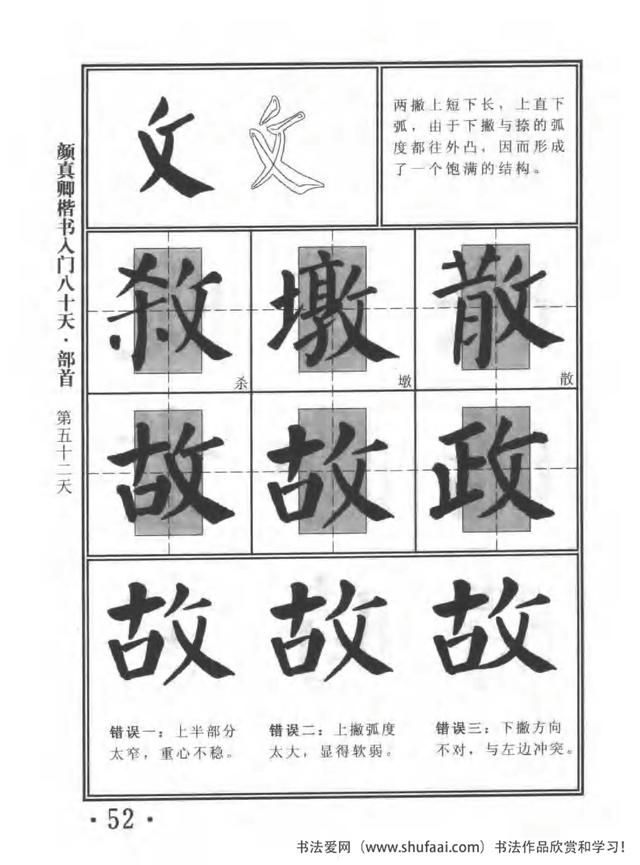 颜真卿楷书入门八十天·部首 第五十二天
攵
攵
两撇上短下长，上直下
弧，由于下撇与捺的弧
度都往外凸，因而形成
了一个饱满的结构。
杀
墩
散
墩
散
故
故
政
故
故
故
错误一：上半部分
太窄，重心不稳。
错误二：上撇弧度
太大，显得软弱。
错误三：下撇方向
不对，与左边冲突。
·52·
书法爱网（www.shufaai.com）书法作品欣赏和学习！